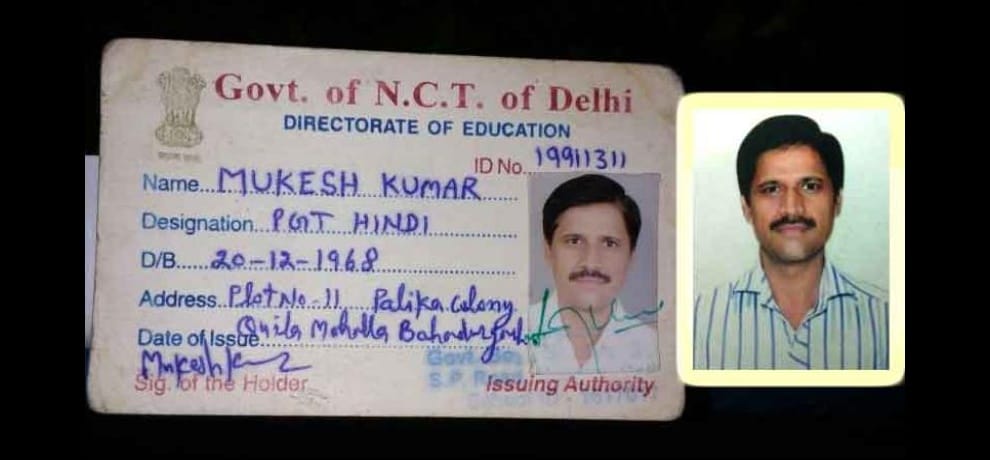 Govt. of N.C.T. of Delhi
DIRECTORATE OF EDUCATION
ID No. 19911311
Name...MUKESH KUMAR
Designation...PGT HINDI
D/B.....20-12-1968
Address..Plot No-11 Palika Colony
Quila Mohalla
Date of Issue
Mukesh Kumar
Sig. of the Holder
Issuing Authority